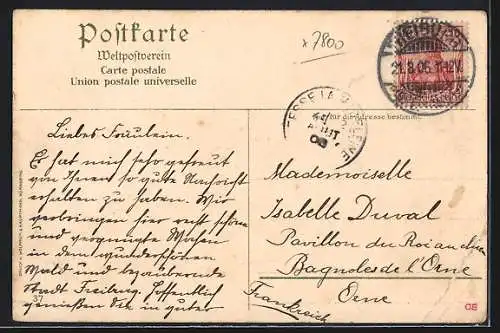 Postkarte
Weltpostverein
Carte postale
Union postale universelle
x7800
FREIBURG
21.8.06. 11-12V.
Nur für die Adresse bestimmt.
TESSE LA MADELEINE
AOUT
06
Liebes Fräulein.
Es hat mich sehr gefreut
von Ihnen so gute Nachricht
erhalten zu haben. Wir
verbringen hier recht schöne
und vergnügte Wochen
in dem wunderschönen
Wald und bezaubernde
Stadt Freiburg. Hoffentlich
genießen Sie in guter
Mademoiselle
Isabelle Duval
Pavillon du Roi au deux
Bagnoles de l'Orne
Orne
Frankreich
37
CE